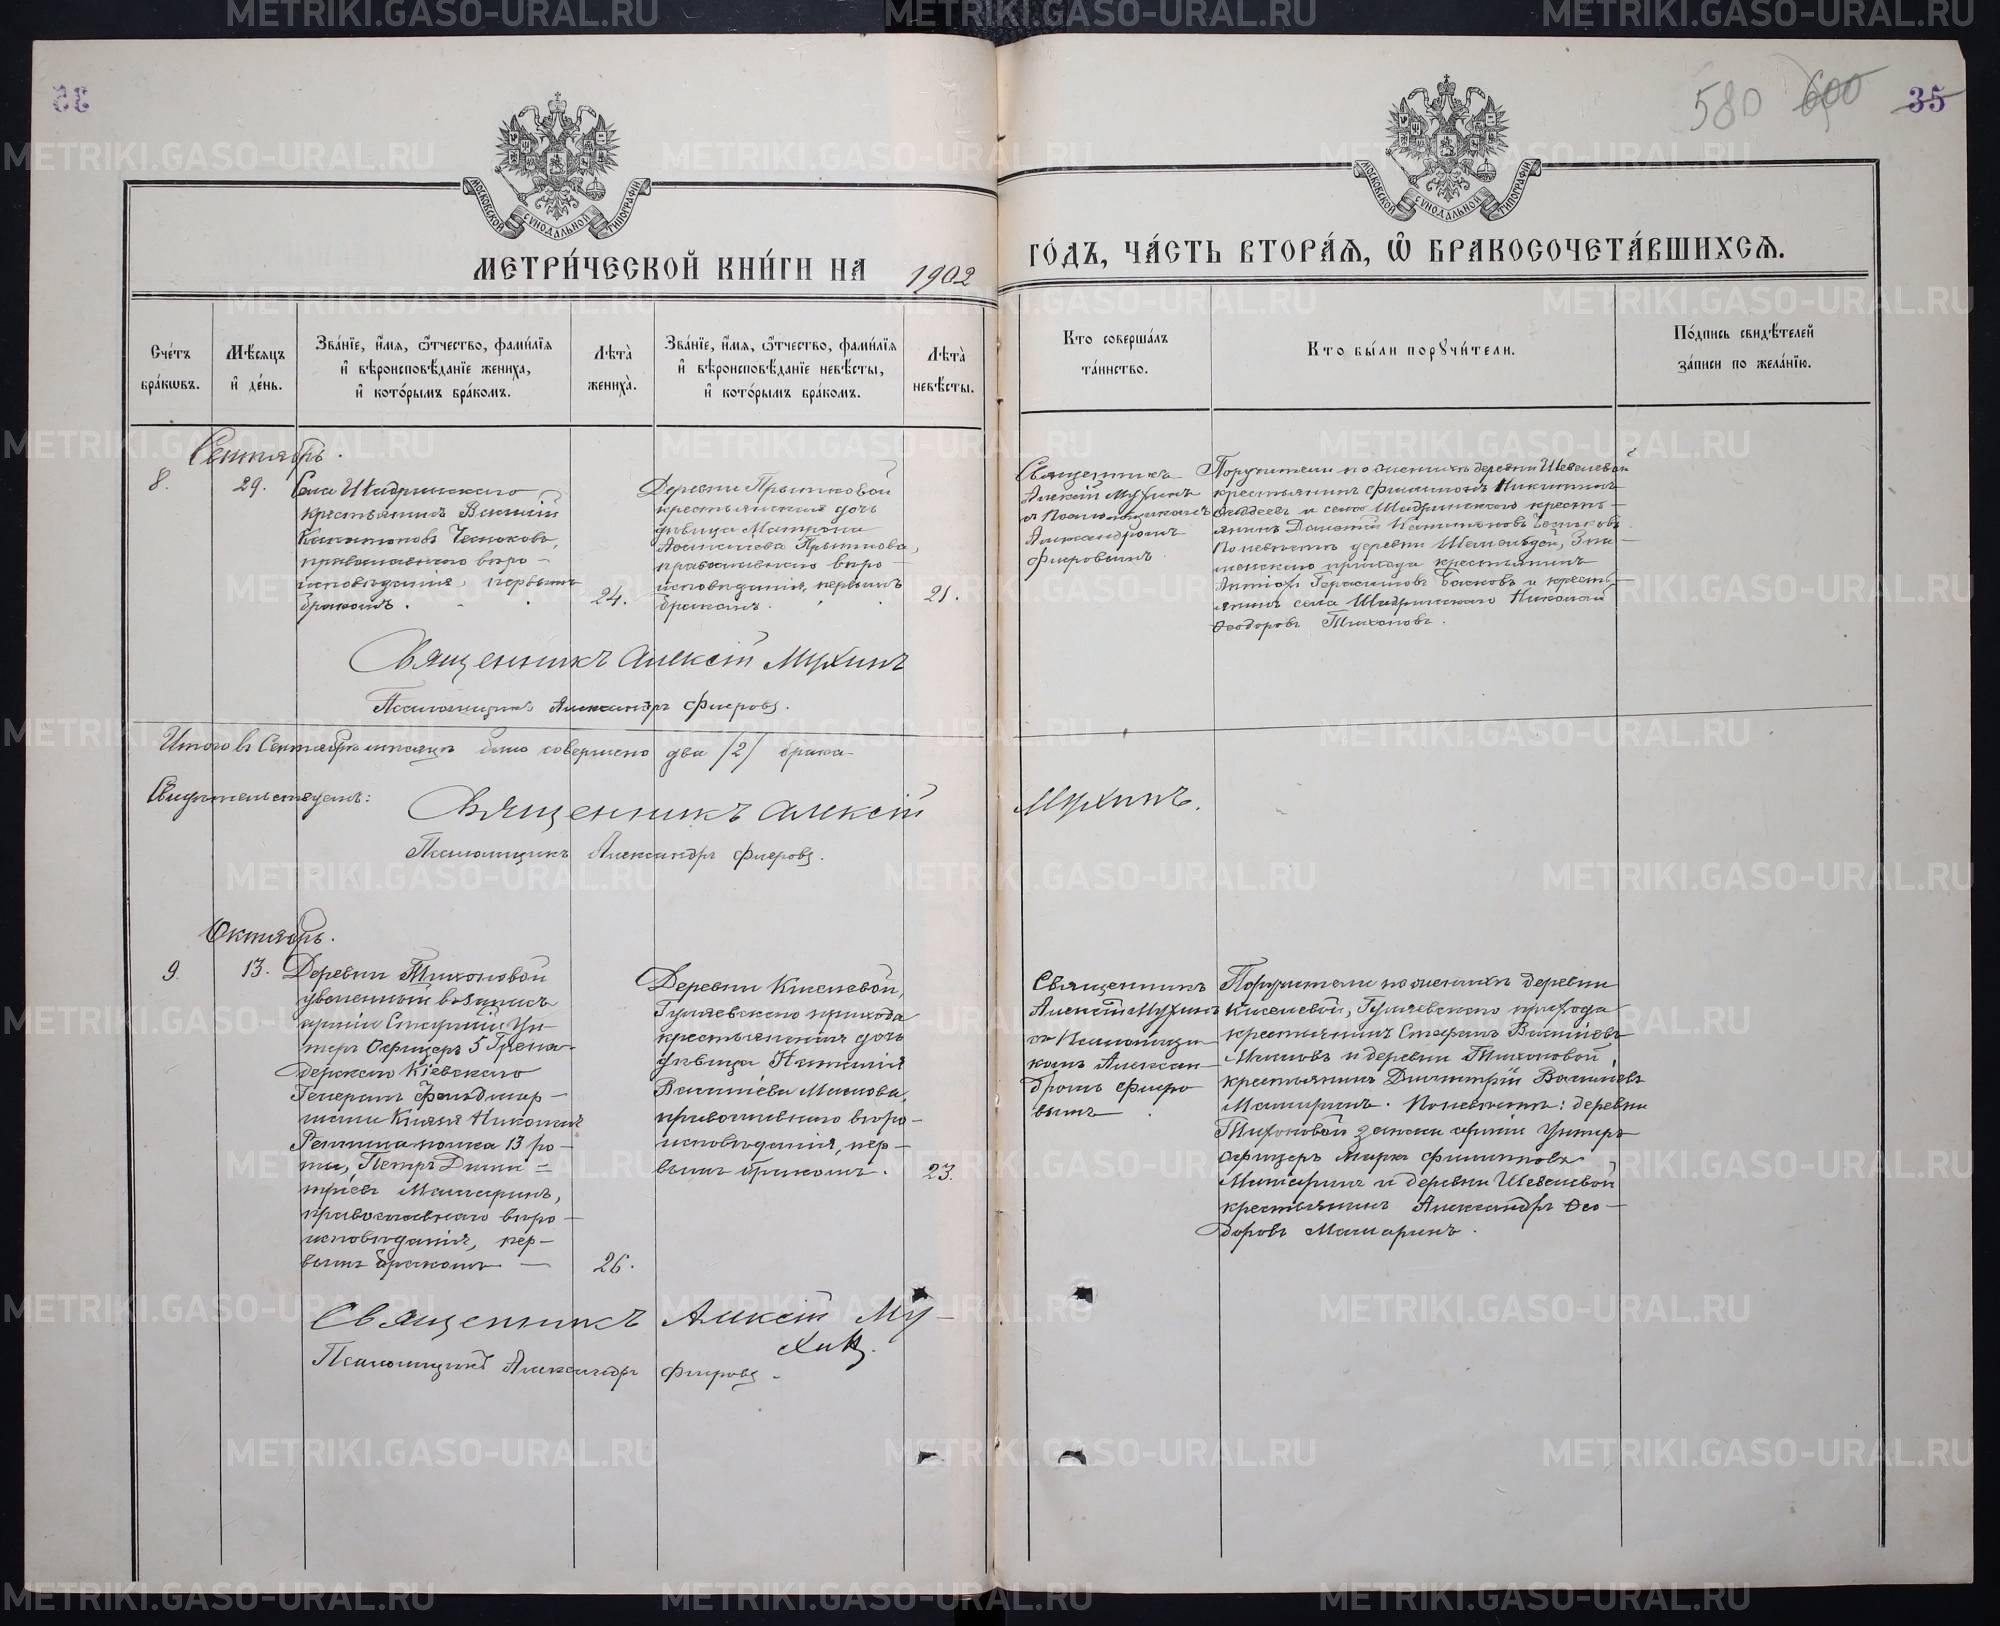 580 600 35
МОСКОВСКОЙ СУНОДАЛЬНОЙ ТИПОГРАФІИ
МОСКОВСКОЙ СУНОДАЛЬНОЙ ТИПОГРАФІИ
МЕТРИ́ЧЕСКОЙ КНИ́ГИ НА 1902 ГО́ДЪ, ЧА́СТЬ ВТОРА́Ѧ, Ѽ БРАКОСОЧЕТА́ВШИХСѦ.
Сче́тъ
бра́кωвъ.
Мѣ́сяцъ
и҆ де́нь.
Зва́нїе, и҆́мѧ, ѻ҆́тчество, фами́лїѧ
и҆ вѣроисповѣ́данїе жениха̀,
и҆ кото́рымъ бра́комъ.
Лѣта̀
жениха̀.
Зва́нїе, и҆́мѧ, ѻ҆́тчество, фами́лїѧ
и҆ вѣроисповѣ́данїе невѣ́сты,
и҆ кото́рымъ бра́комъ.
Лѣта̀
невѣ́сты.
Кто соверша́лъ
та́инство.
Кто бы́ли порꙋчи́тели.
По́дпись свидѣ́телей
за́писи по жела́нїю.
Сентябрь.
8.
29.
Села Шадринскаго
крестьянинъ Василій
Капитоновъ Чесноковъ,
православнаго вѣро-
исповѣданія, первымъ
бракомъ.
24.
Деревни Прытковой
крестьянская дочь
дѣвица Матрона
Прыткова,
православнаго вѣро-
исповѣданія, первымъ
бракомъ.
21.
Священникъ
Алексій Мухинъ
съ Псаломщикомъ
Александромъ
Флеровымъ
Поручители по женихѣ деревни Шевелевой
крестьянинъ Филимонъ Никитинъ
и села Шадринскаго кресть-
янинъ Капитоновъ Чесноковъ.
По невѣстѣ деревни Зна-
менскаго прихода крестьянинъ
Герасимовъ и кресть-
янинъ села Шадринскаго Николай
Ѳеодоровъ Тихоновъ.
Священникъ Алексій Мухинъ
Псаломщикъ Александръ Флеровъ.
Итого въ Сентябрѣ мѣсяцѣ было совершено два /2/ брака
Свидѣтельствуемъ:
Священникъ Алексій Мухинъ.
Псаломщикъ Александръ Флеровъ.
Октябрь.
9.
13.
Деревни Тихоновой
уволенный въ запасъ
арміи Старшій Ун-
теръ Офицеръ 5 Грена-
дерскаго Кіевскаго
Генералъ Фельдмар-
шала Князя Николая
Репнина полка 13 ро-
ты, Петръ Дими-
тріевъ Машаринъ,
православнаго вѣро-
исповѣданія, пер-
вымъ бракомъ
26.
Деревни Киселевой,
Гуляевскаго прихода
крестьянская дочь
дѣвица Наталія
Василіева
православнаго вѣро-
исповѣданія, пер-
вымъ бракомъ.
23.
Священникъ
Алексій Мухинъ
съ Псаломщи-
комъ Алексан-
дромъ Флеро-
вымъ
Поручители по женихѣ деревни
Киселевой, Гуляевскаго прихода
крестьянинъ Стефанъ Василіевъ
и деревни Тихоновой
крестьянинъ Димитрій Василіевъ
Машаринъ. По невѣстѣ: деревни
Тихоновой запаса арміи Унтеръ
Офицеръ Маркъ Филипповъ
Машаринъ и деревни Шевелевой
крестьянинъ Александръ Ѳео-
доровъ Машаринъ.
Священникъ Алексій Му-
хинъ.
Псаломщикъ Александръ Флеровъ.
METRIKI.GASO-URAL.RU